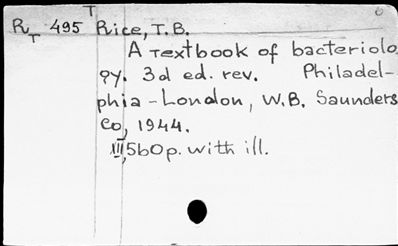 T
R_T 495 Rice, T.B.
A Textbook of bacteriolo
gy. 3d ed. rev. Philadel-
phia-London, W.B. Saunders
Co, 1944.
XII, 560p. with ill.